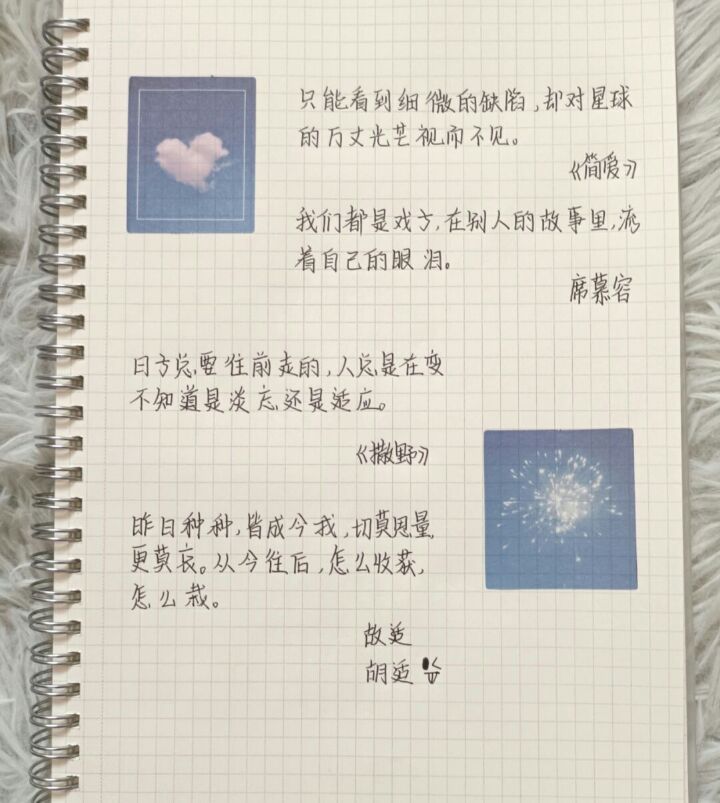 只能看到细微的缺陷,却对星球
的万丈光芒视而不见。
《简爱》
我们都是戏子,在别人的故事里,流
着自己的眼泪。
席慕容
日子总要往前走的,人总是在变
不知道是淡忘还是适应。
《撒野》
昨日种种,皆成今我,切莫思量,
更莫哀。从今往后,怎么收获,
怎么栽。
故适
胡适